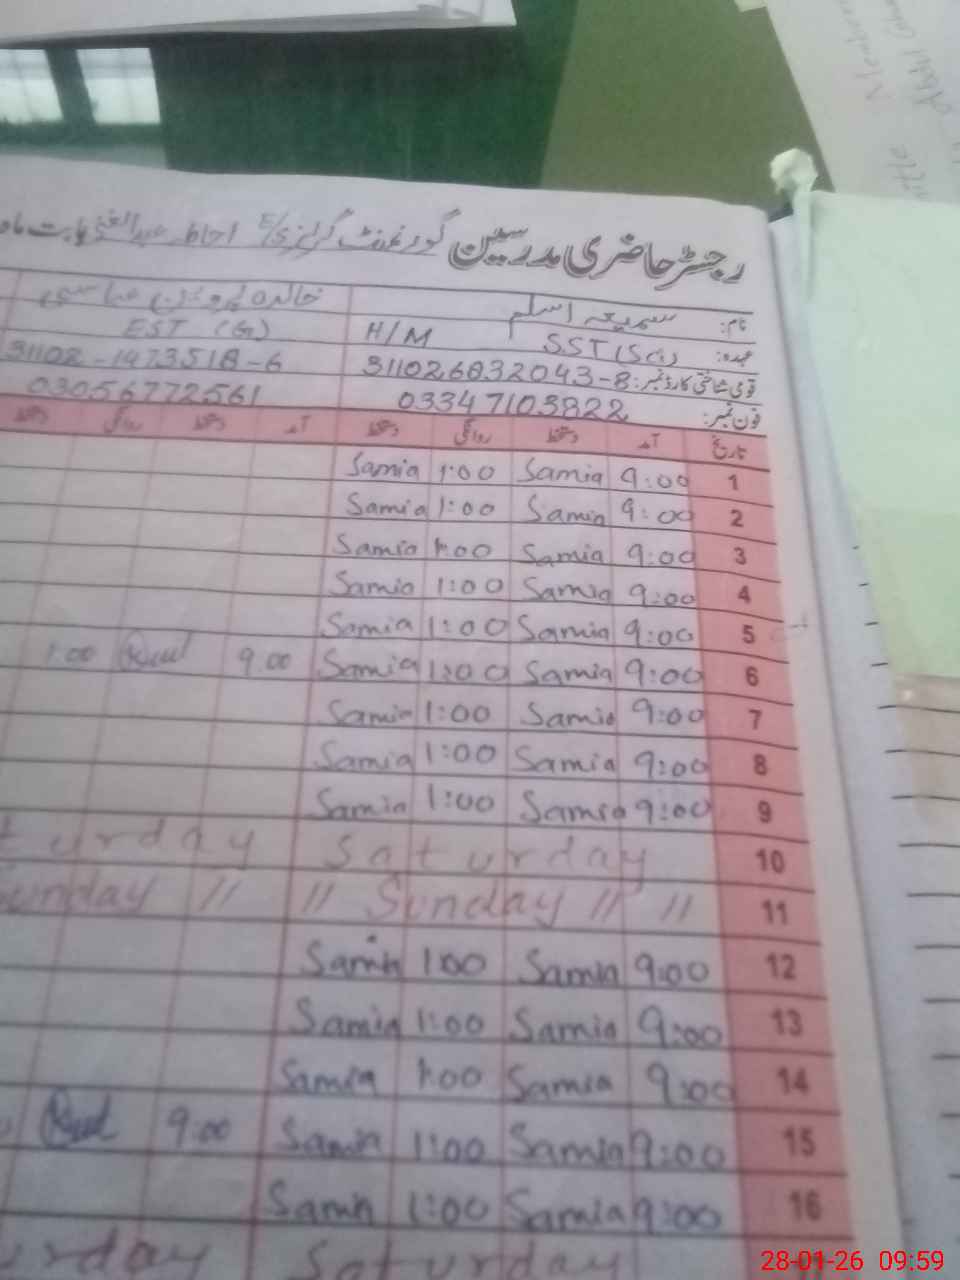 Members
Abdul
رجسٹر حاضری مدرسین گورنمنٹ گرلز E/S احاطہ عبدالغنی بابت ماہ
نام: سمیعہ اسلم خالدہ پروین عباسی
عہدہ: SST(Sci) H/M EST (G)
قومی شناختی کارڈ نمبر: 311026832043-8 31102-1473518-6
فون نمبر: 03347103822 03056772561
تاریخ آمد دستخط روانگی دستخط آمد دستخط روانگی دستخط
1 9:00 Samia 1:00 Samia
2 9:00 Samia 1:00 Samia
3 9:00 Samia 1:00 Samia
4 9:00 Samia 1:00 Samia
5 9:00 Samia 1:00 Samia
6 9:00 Samia 1:00 Samia 9:00 1:00
7 9:00 Samia 1:00 Samia
8 9:00 Samia 1:00 Samia
9 9:00 Samia 1:00 Samia
10 Saturday turday
11 Sunday // // Sunday // //
12 9:00 Samia 1:00 Samia
13 9:00 Samia 1:00 Samia
14 9:00 Samia 1:00 Samia
15 9:00 Samia 1:00 Samia 9:00
16 9:00 Samia 1:00 Samia
Saturday urday
28-01-26 09:59